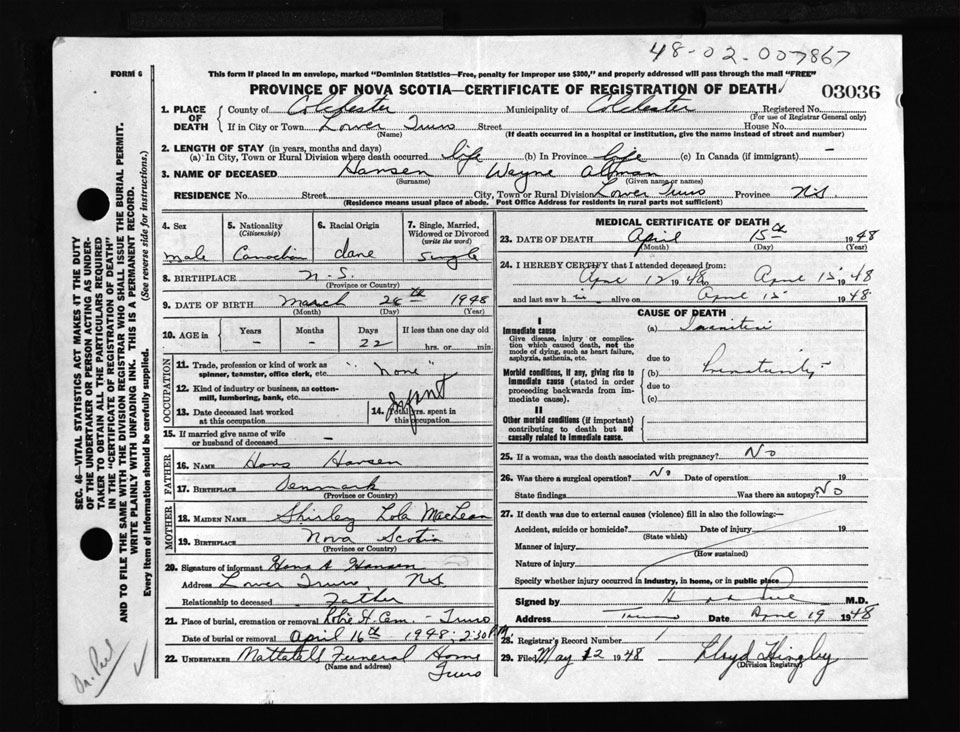 48-02-007867
FORM 6
This form if placed in an envelope, marked "Dominion Statistics—Free, penalty for improper use $300," and properly addressed will pass through the mail "FREE"
PROVINCE OF NOVA SCOTIA—CERTIFICATE OF REGISTRATION OF DEATH
03036
1. PLACE OF DEATH
County of Colchester Municipality of Colchester Registered No.
(For use of Registrar General only)
If in City or Town Lower Truro Street House No.
(Name) (If death occurred in a hospital or institution, give the name instead of street and number)
2. LENGTH OF STAY (in years, months and days)
(a) In City, Town or Rural Division where death occurred life (b) In Province life (c) In Canada (if immigrant) -
3. NAME OF DECEASED Hansen Wayne
(Surname) (Given name or names)
RESIDENCE No. Street City, Town or Rural Division Lower Truro Province N.S.
(Residence means usual place of abode. Post Office Address for residents in rural parts not sufficient)
4. Sex
male
5. Nationality
(Citizenship)
Canadian
6. Racial Origin
dane
7. Single, Married, Widowed or Divorced
(write the word)
single
8. BIRTHPLACE N.S.
(Province or Country)
9. DATE OF BIRTH March th 1948
(Month) (Day) (Year)
10. AGE in
Years Months Days If less than one day
- - 22 hrs. or min.
OCCUPATION
11. Trade, profession or kind of work as spinner, teamster, office clerk, etc. "none"
12. Kind of industry or business, as cotton-mill, lumbering, bank, etc. Infant
13. Date deceased last worked at this occupation
14. Total yrs. spent in this occupation
15. If married give name of wife or husband of deceased -
FATHER
16. NAME Hans Hansen
17. BIRTHPLACE Denmark
(Province or Country)
MOTHER
18. MAIDEN NAME Shirley Lola MacLean
19. BIRTHPLACE Nova Scotia
(Province or Country)
20. Signature of informant Hans A Hansen
Address Lower Truro N.S.
Relationship to deceased Father
21. Place of burial, cremation or removal Robie St. Cem. - Truro
Date of burial or removal April 16th 1948; 2:30 P.M.
22. UNDERTAKER Mattatall Funeral Home
(Name and address) Truro
MEDICAL CERTIFICATE OF DEATH
23. DATE OF DEATH April 15th 1948
(Month) (Day) (Year)
24. I HEREBY CERTIFY that I attended deceased from:
April 12 1948 to April 15 1948
and last saw h im alive on April 15 1948
CAUSE OF DEATH
I
Immediate cause
Give disease, injury or complication which caused death, not the mode of dying, such as heart failure, asphyxia, asthenia, etc.
(a) Inanition
due to
Morbid conditions, if any, giving rise to immediate cause (stated in order proceeding backwards from immediate cause).
(b) Prematurity
due to
(c)
II
Other morbid conditions (if important) contributing to death but not causally related to immediate cause.
25. If a woman, was the death associated with pregnancy? No
26. Was there a surgical operation? No Date of operation 19
State findings Was there an autopsy? No
27. If death was due to external causes (violence) fill in also the following:—
Accident, suicide or homicide? Date of injury 19
(State which)
Manner of injury
(How sustained)
Nature of injury
Specify whether injury occurred in industry, in home, or in public place
Signed by M.D.
Address Truro Date April 19 1948
28. Registrar's Record Number 1
29. Filed May 12 1948 Lloyd Hingley
(Division Registrar)
SEC. 46—VITAL STATISTICS ACT MAKES IT THE DUTY OF THE UNDERTAKER OR PERSON ACTING AS UNDERTAKER TO OBTAIN ALL THE PARTICULARS REQUIRED IN THE "CERTIFICATE OF REGISTRATION OF DEATH" AND TO FILE THE SAME WITH THE DIVISION REGISTRAR WHO SHALL ISSUE THE BURIAL PERMIT.
WRITE PLAINLY WITH UNFADING INK. THIS IS A PERMANENT RECORD.
Every item of information should be carefully supplied. (See reverse side for instructions.)